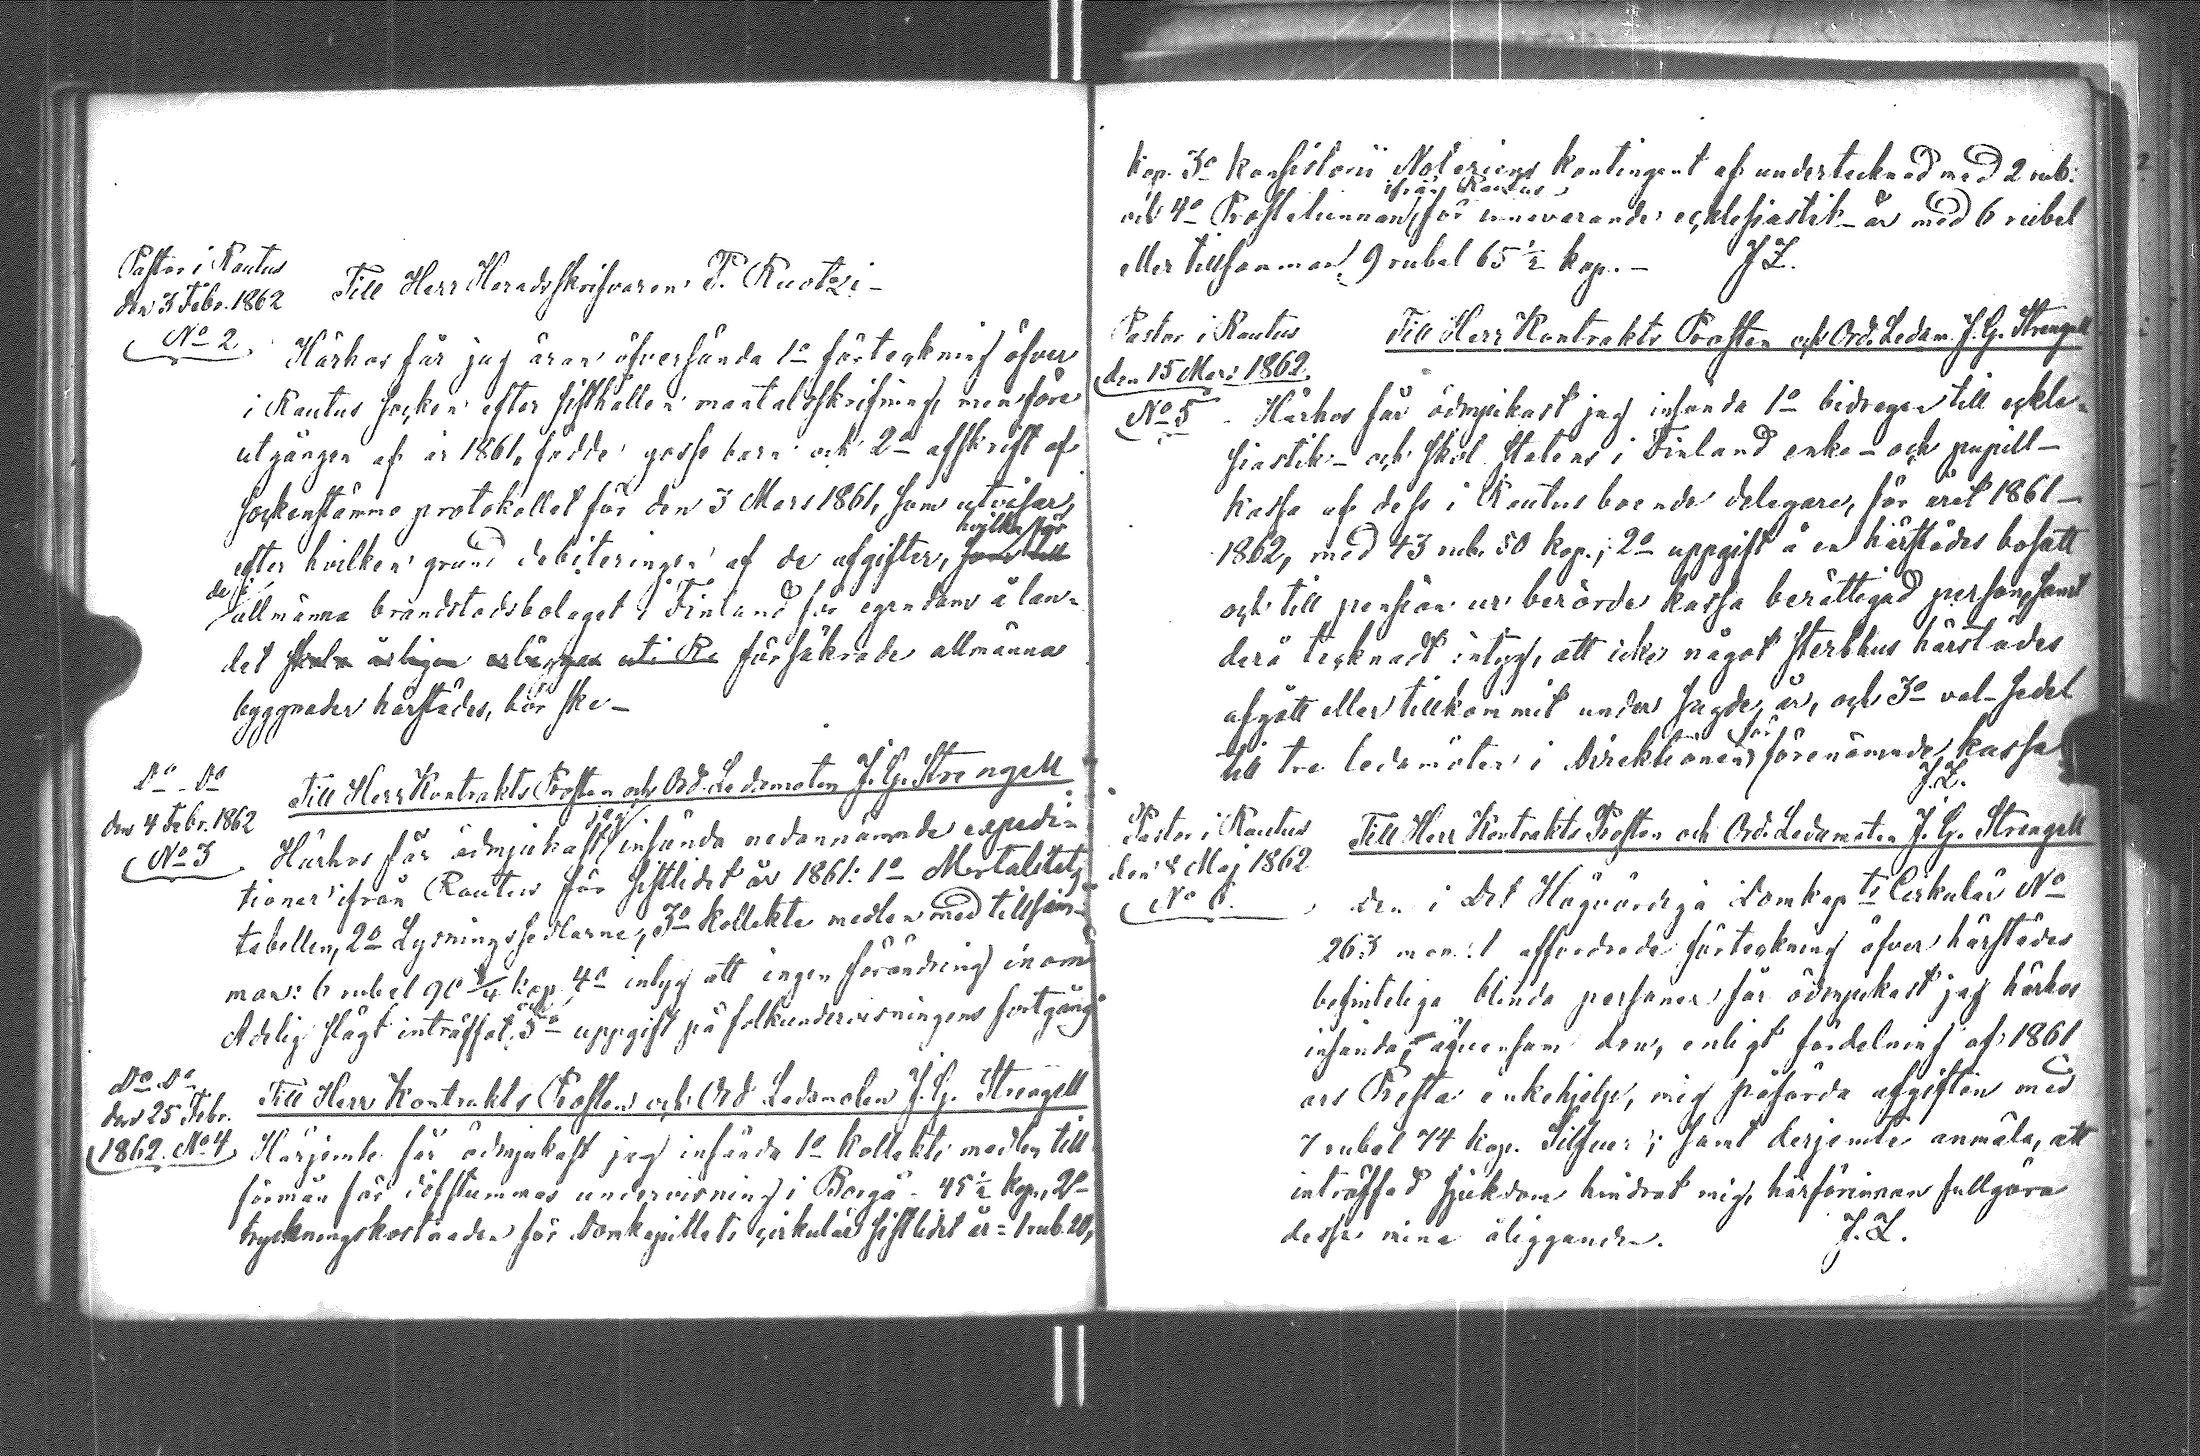 Pastor i Rautus
den 3 Febr. 1862
No 2.
Till Herr Häradsskrifvaren F. Kuotzi –
Härhos får jag äran öfversända 1o förteckning öfver
i Rautus socken efter sisthållen mantalsskrifning, men före
utgången af år 1861, födde gosse barn och 2o afskrift af
sockenstämmo protokollet för den 3 Mars 1861, som utvisar,
hvilka för
efter hvilken grund debiteringen af de afgifter, som till
de i
allmänna brandstodsbolaget i Finland för egendom å lan-
det skola årligen erläggas uti Ra försäkrade allmänna
byggnader härstädes, bör ske –
Do Do
den 4 Febr. 1862
No 3
Till Herr Kontrakts Prosten och Ord. Ledamoten J. G. Strengell
jag
Härhos får ödmjukast insända nedannämnde expedi-
tioner ifrån Rautus för sistlidet år 1861: 1o Mortalitets
tabellen, 2o Lysningssedlarne, 3o kollekte medlen med tillsam-
man: 6 rubel 90 3/4 kop. 4o intyg att ingen förändring inom
och
Adelig slägt inträffat, 5o uppgift på folkundervisningens fortgång
Do Do
den 25 Febr.
1862. No 4
Till Herr Kontrakts Prosten och Ord Ledamoten J. G. Strengell
Härjemte får ödmjukast jag insända 1o kollekte medlen till
förmån för döfstummas undervisning i Borgå – 45 1/2 kop, 2o
tryckningskostnaden för Domkapitlets cirkulär sistlidet år = 1 rub. 20,
kop. 3o Konsistorii Notariens kontingent af undertecknad med 2 rub:
ifrån Rautus
och 4o Prostetunnan för innevarande ecklesiastik-år med 6 rubel
eller tillsamman 9 rubel 65 1/2 kop. – J. L.
Pastor i Rautus
den 15 Mars 1862.
No 5
Till Herr Kontrakts Prosten och Ord. Ledam. J. G. Strengell
Härhos får ödmjukast jag insända 1o bidragen till eckle-
siastik- och skol statens i Finland enke- och pupill-
kassa af dess i Rautus boende delegare, för året 1861–
1862, med 43 rub. 50 kop.; 2o uppgift å en härstädes bosatt
och till pension ur berörde kassa berättigad person, samt
derå tecknadt intyg, att icke något sterbhus härstädes
afgått eller tillkommit under sagde år, och 3o val-sedel
för
till tre ledamöter i Direktionen förenämnde kassa
J. L.
Pastor i Rautus
den 8 Maj 1862
No 6.
Till Herr Kontrakts Prosten och Ord. Ledamoten J. G. Strengell
Den i Det Högvördiga Domkap ts Cirkulär No
263 mom: 1 affordrade förteckning öfver härstädes
befinteliga blinda personer får ödmjukast jag härhos
insända, äfvensom den, enligt fördelning af 1861
års Presta enkehjelp, mig påförda afgiften med
7 rubel 74 kop. Silfver; samt derjemte anmäla, att
inträffad sjukdom hindrat mig, härförinnan fullgöra
desse mine åligganden. J. L.